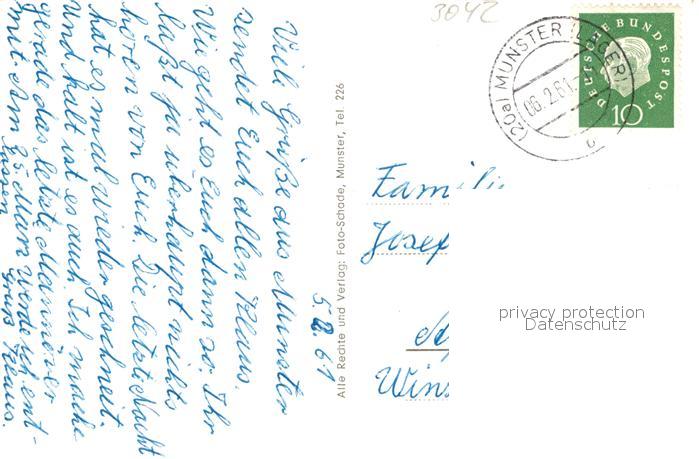 3042
DEUTSCHE BUNDESPOST
10
(20a) MUNSTER (LAGER)
06.2.61
Familie
Josef
Wins
privacy protection
Datenschutz
Alle Rechte und Verlag: Foto-Schade, Munster, Tel. 226
5.2.61
Viele Grüße aus Munster
sendet Euch allen Klaus.
Wie geht es Euch dann so. Ihr
laßt ja überhaupt nichts
hören von Euch. Die letzte Nacht
hat es mal wieder geschneit.
Und kalt ist es auch. Ich mache
gerade das letzte Manöver
mit. Am 25. März werde ich ent-
lassen
Gruß Klaus.